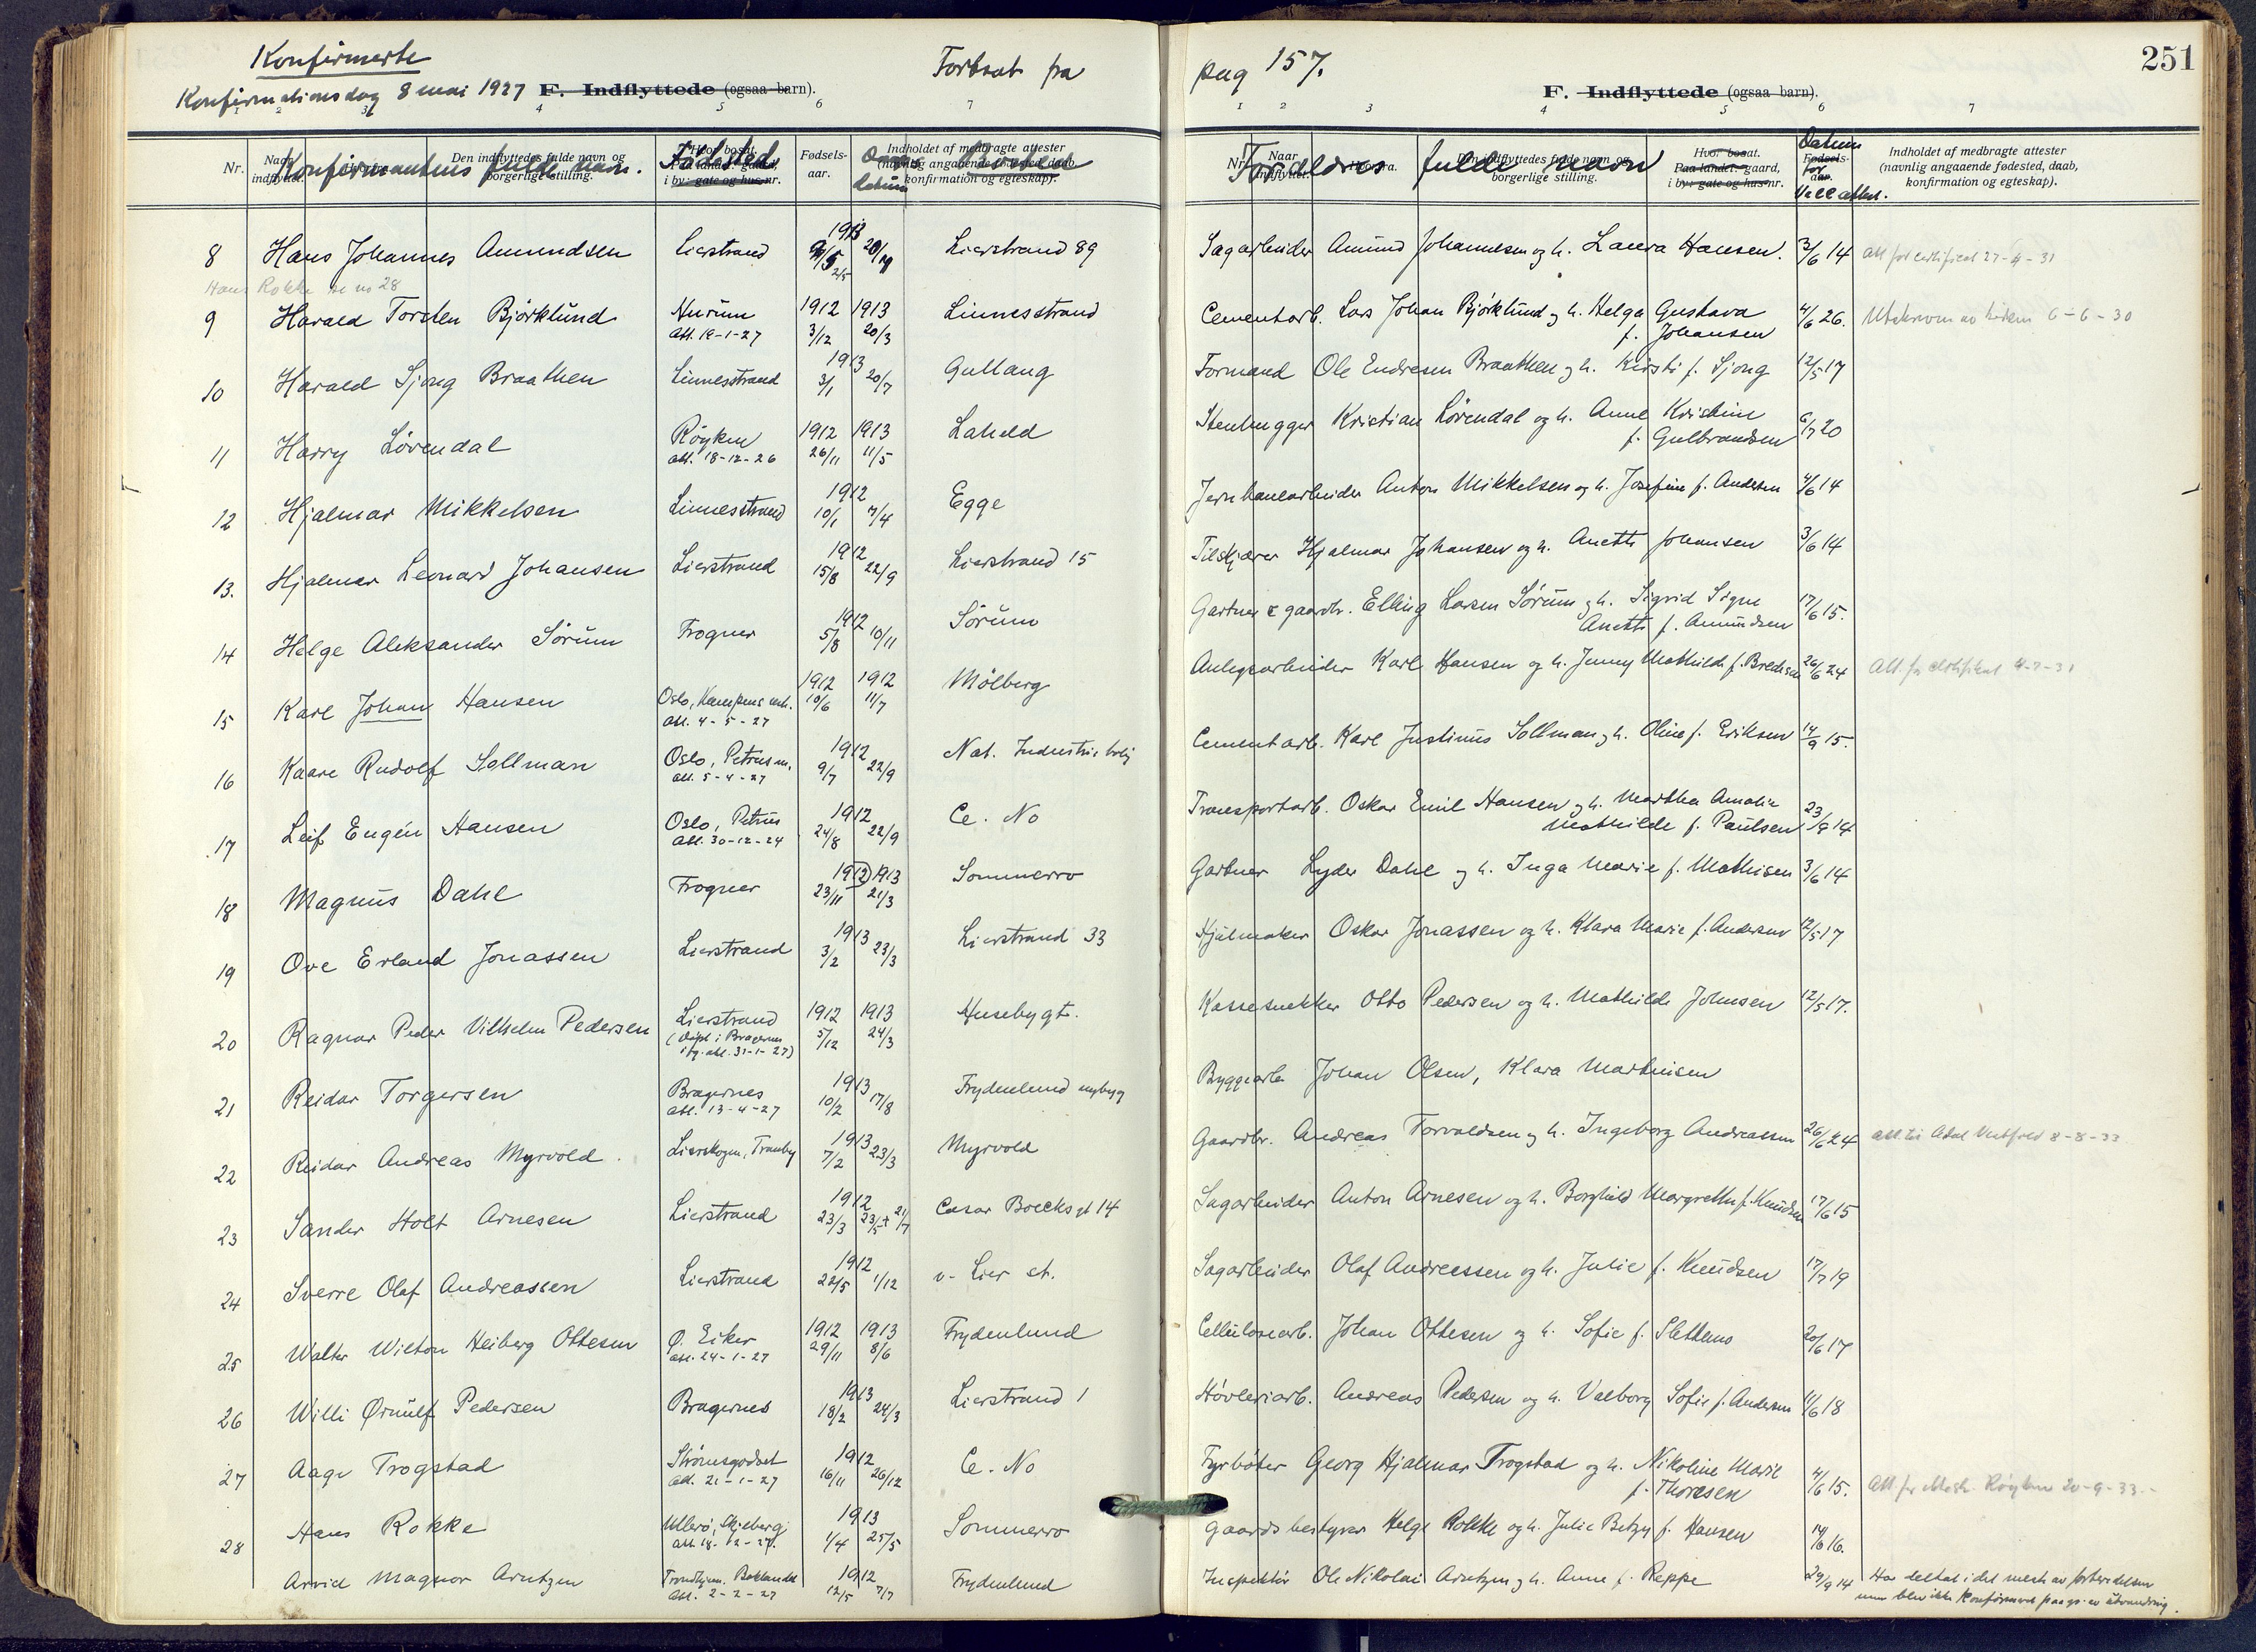 Konfirmerte
Konfirmationsdag 8 mai 1927 F. Indflyttede (ogsaa barn).
Fortsat fra
1 2 3 4 5 6 7
Nr. Konfirmantens fulde navn. Fødested Fødsels-aar. Daabs datum
8 Hans Johannes Amundsen Lierstrand 1913 Lierstrand 89
Hans Rokke se no 28
9 Harald Torsten Bjørklund Hurum 1912 1913 Linnesstrand
att. 19-1-27 3/12 20/3
10 Harald Sjong Braathen Linnesstrand 1913 3/1 20/7 Gullaug
11 Harry Lövendal Röyken 1912 1913 Laheld
att. 18-12-26 26/11 11/5
12 Hjalmar Mikkelsen Linnesstrand 1912 10/1 7/4 Egge
13. Hjalmar Leonard Johansen Lierstrand 1912 15/8 22/9 Lierstrand 15
14 Helge Aleksander Sörum Frogner 1912 5/8 10/11 Sörum
15 Karl Johan Hansen Oslo, Kampens 1912 1912 Mölberg
att. 4-5-27 10/6 11/7
16 Kaare Rudolf Sollman Oslo, Petrus m. 1912 Nat. Industri bolig
att. 5-4-27 9/7 22/9
17 Leif Eugén Hansen Oslo, Petrus 1912 Ce. No
att. 30-12-24 24/8 22/9
18 Magnus Dahl Frogner 1912 1913 23/11 21/3 Sommerro
19 Ove Erland Jonassen Lierstrand 1913 3/2 23/3 Lierstrand 33
20 Ragnar Peder Vilhelm Pedersen Lierstrand 1912 1913 Husebygt.
(döpt i Bragernes att. 31-1-27) 5/12 24/3
21 Reidar Torgersen Bragernes 1913 Frydenlund nybyg
att. 13-4-27 10/2 17/8
22 Reidar Andreas Myrvold. Lierskogen, Tranby 1913 7/2 23/3 Myrvold
23 Sander Holt Arnesen Lierstrand 1912 23/3 23/5 + 21/7 Cesar Boecks gt 14
24 Sverre Olaf Andreassen Lierstrand 1912 22/5 1/12 v. Lier st.
25 Walter Wilton Heiberg Ottesen Ø. Eiker 1912 1913 Frydenlund
att. 24-1-27 29/11 8/6
26 Willi Ørnulf Pedersen Bragernes 1913 18/2 24/3 Lierstrand 1
27 Aage Trogstad Strömsgodset 1912 Ce. No
att. 21-1-27 16/11 26/12
28 Hans Rokke Ullerö, Skjeberg 1913 Sommerro
1/4 25/5
Arvid Magnor Arntzen Trondhjem. Baklandet 1912 Frydenlund
att. 2-2-27 12/5 7/7
pag 157. 251
F. Indflyttede (ogsaa barn).
1 2 3 4 5 6 7
Forældres fulde navn Datum for Vacc.attest. Indholdet af medbragte attester
(navnlig angaaende fødested, daab,
konfirmation og egteskap).
Sagarbeider Amund Johannesen og h. Laura Hansen. 3/6 14 att for certificat 27-4-31
Cementarb. Lars Johan Bjørklund og h. Helga Gustava 4/6 26. 6-6-30
f. Johansen
Formand Ole Endresen Braathen og h. Kirsti f. Sjong 12/5 17
Stenhugger Kristian Lövendal og h. Anne Kristine 6/7 20
f. Gulbrandsen
Jernbanearbeider Anton Mikkelsen og h. Josefine f. Andersen 4/6 14
Tilskjærer Hjalmar Johansen og h. Anette Johansen 3/6 14
Gartner & gaardbr. Elling Larsen Sörum og h. Sigrid Signe 17/6 15.
Anette f. Amundsen
Anlegsarbeider Karl Hansen og h. Jenny Mathilde f. Bredesen 26/6 24 Att. for certifikat 4-7-31
Cementarb. Karl Justinus Sollman og h. Oline f. Eriksen 14/9 15.
Transportarb. Oskar Emil Hansen og h. Martha Amalie 23/9 14
Mathilde f. Paulsen
Gartner Lyder Dahl og h. Inga Marie f. Mathisen 3/6 14
Hjulmaker Oskar Jonassen og h. Klara Marie f. Andersen 12/5 17
Kassesnekker Otto Pedersen og h. Mathilde Johnsen 12/5 17.
Byggearb Johan Olsen, Klara Martinisen
Gaardbr. Andreas Torvaldsen og h. Ingeborg Andreassen 26/6 24 att. til Adal Vestfold 8-8-33
Sagarbeider Anton Arnesen og h. Borghild Margrethe f. Knudsen 17/6 15
Sagarbeider Olaf Andreassen og h. Julie f. Knudsen 17/7 19
Cellulosearb. Johan Ottesen og h. Sofie f. Slettemo 20/6 17
Hövleriarb. Andreas Pedersen og h. Valborg Sofie f. Andersen 11/6 18
Fyrböter Georg Hjalmar Trogstad og h. Nikoline Marie 4/6 15. Att for Röyken 20-9-33.
f. Thoresen
Gaardsbestyrer Helge Rokke og h. Julie Betzy f. Hansen 14/6 16.
Inspektör Ole Nikolai Arntzen og h. Anne f. Reppe 29/9 14 Har deltat i det meste av forberedelsen
men blev ikke konfirmert paa gr. av utvandring.